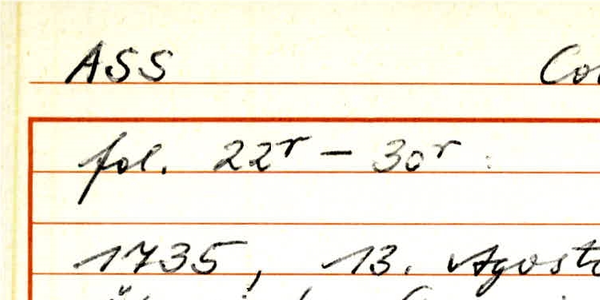 ASS
fol. 22r – 30r :
1735, 13. Agosto